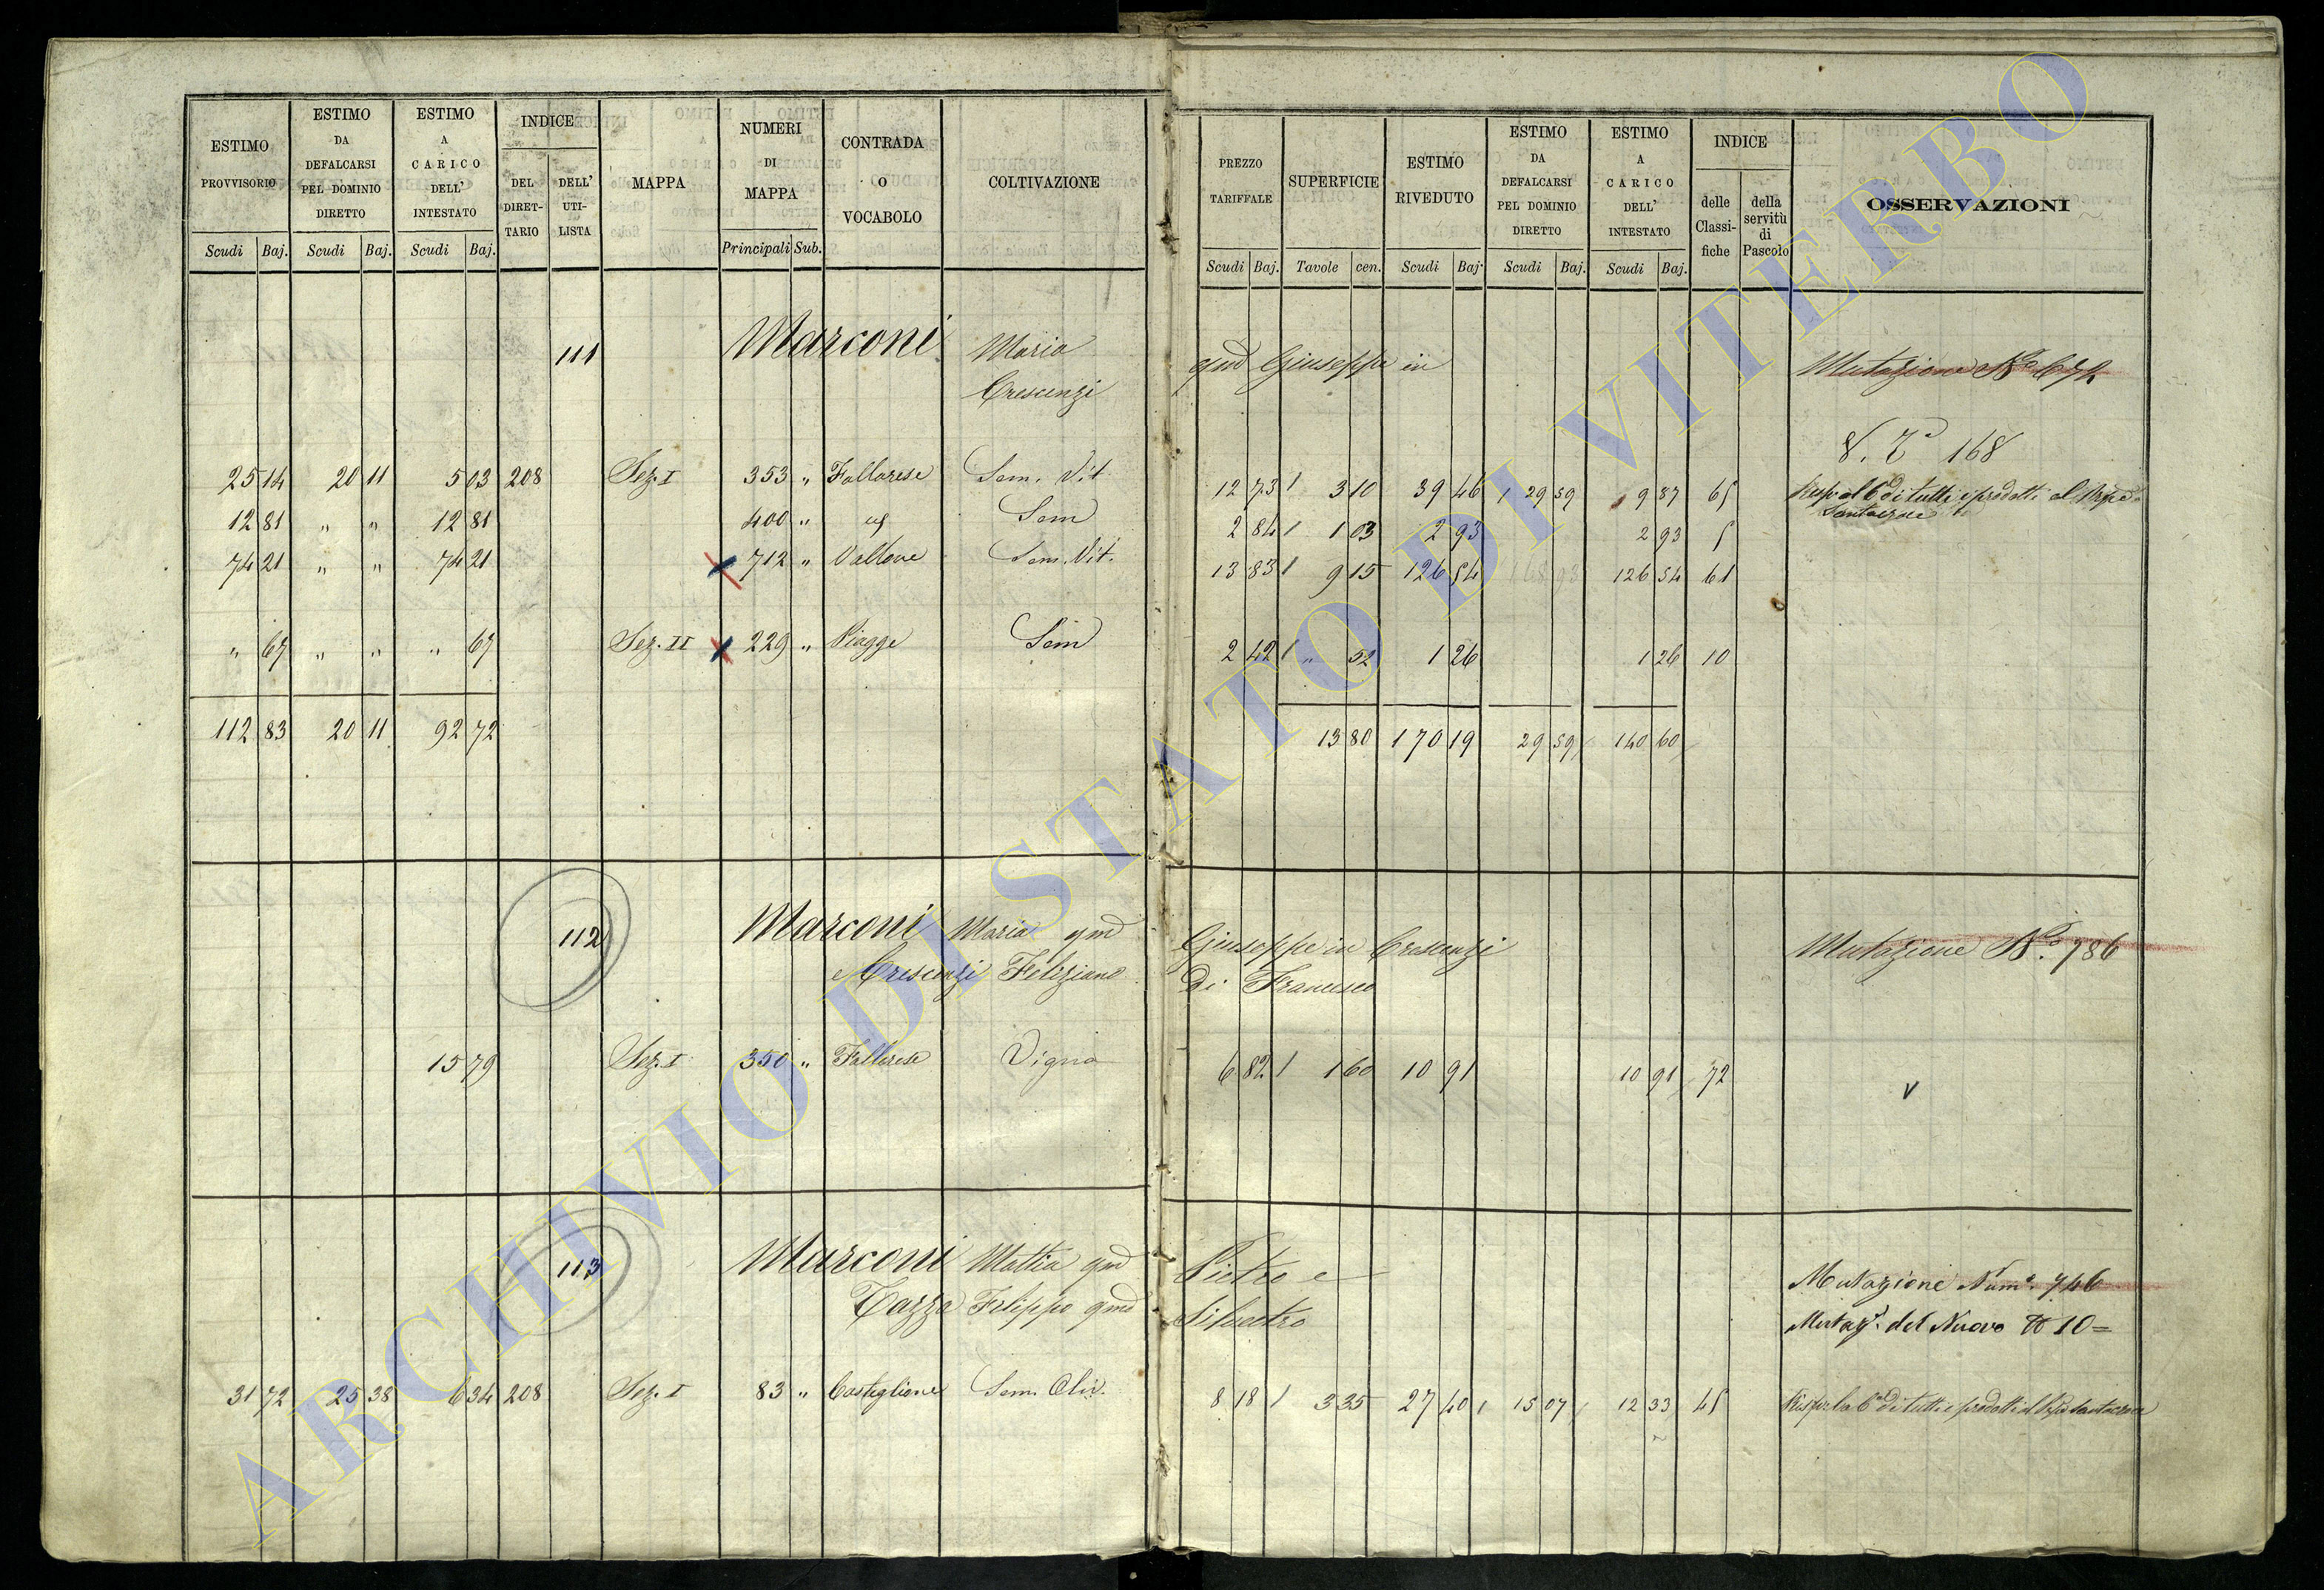 ESTIMO PROVVISORIO Scudi Baj.
ESTIMO DA DEFALCARSI PEL DOMINIO DIRETTO Scudi Baj.
ESTIMO A CARICO DELL' INTESTATO Scudi Baj.
INDICE DEL DIRET- TARIO DELL' UTI- LISTA
MAPPA
NUMERI DI MAPPA Principali Sub.
CONTRADA O VOCABOLO
COLTIVAZIONE
PREZZO TARIFFALE Scudi Baj.
SUPERFICIE Tavole cen.
ESTIMO RIVEDUTO Scudi Baj.
ESTIMO DA DEFALCARSI PEL DOMINIO DIRETTO Scudi Baj.
ESTIMO A CARICO DELL' INTESTATO Scudi Baj.
INDICE delle Classi- fiche della servitù di Pascolo
OSSERVAZIONI
111 Marconi Maria qmd Giuseppe in Mutazione No 674
Crescenzi
168
25 14 20 11 5 03 208 Sez. I 353 " Fallarese Sem. Vit 12 73 3 10 39 46 29 59 9 87 65
12 81 " " 12 81 400 " Sem 2 84 1 03 2 93 2 93 5
74 21 " " 74 21 712 " Vallone Sem. Vit. 13 83 9 15 126 54 126 54 61
" 67 " " " 67 Sez. II 229 " Piagge Sem 2 42 " 52 1 26 1 26 10
112 83 20 11 92 72 13 80 170 19 29 59 140 60
112 Marconi Maria qmd Giuseppe in Crescenzi Mutazione No. 786
Crescenzi Feliziano di Francesco
15 79 Sez. I 350 " Fallarese Vigna 6 82 1 60 10 91 10 91 72
113 Marconi Mattia qmd Pietro e Mutazione Numo. 746
Tazza Filippo qmd Silvestro Mutaz. del Nuovo No 10=
31 72 25 38 6 34 208 Sez. I 83 " Castiglione Sem. Oliv. 8 18 3 35 27 40 15 07 12 33 45
ARCHIVIO DI STATO DI VITERBO